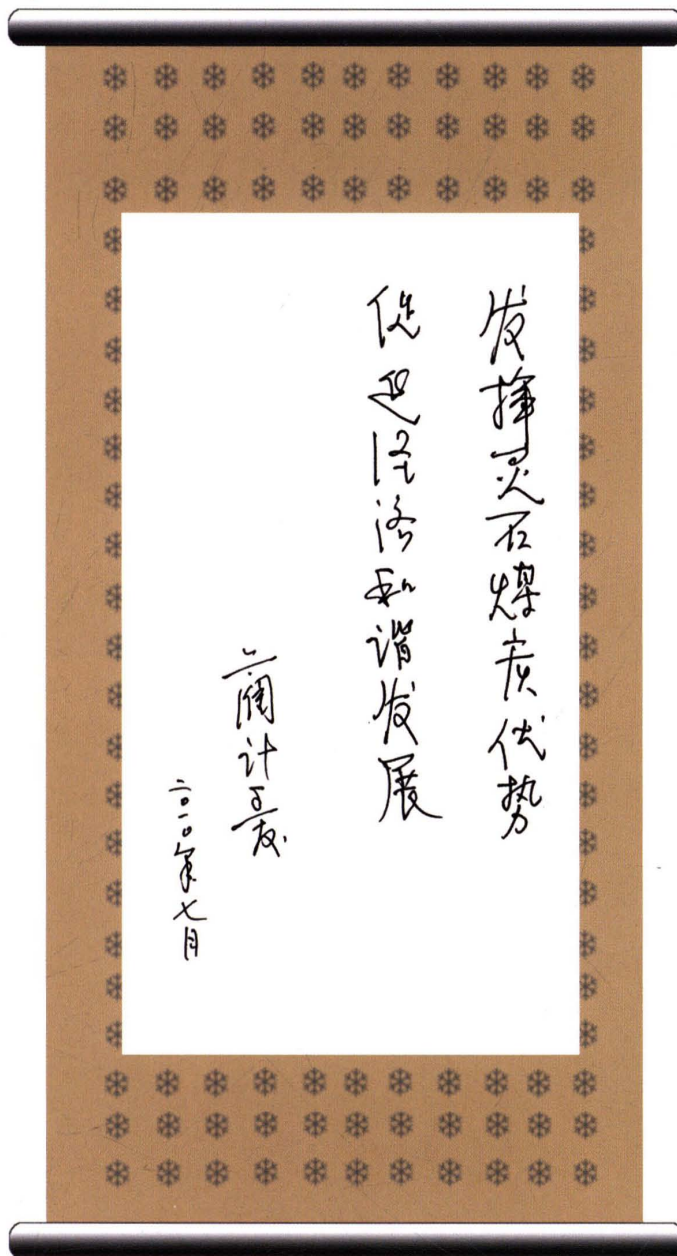 发挥灵石煤炭优势
促进经济和谐发展
二〇一〇年七月